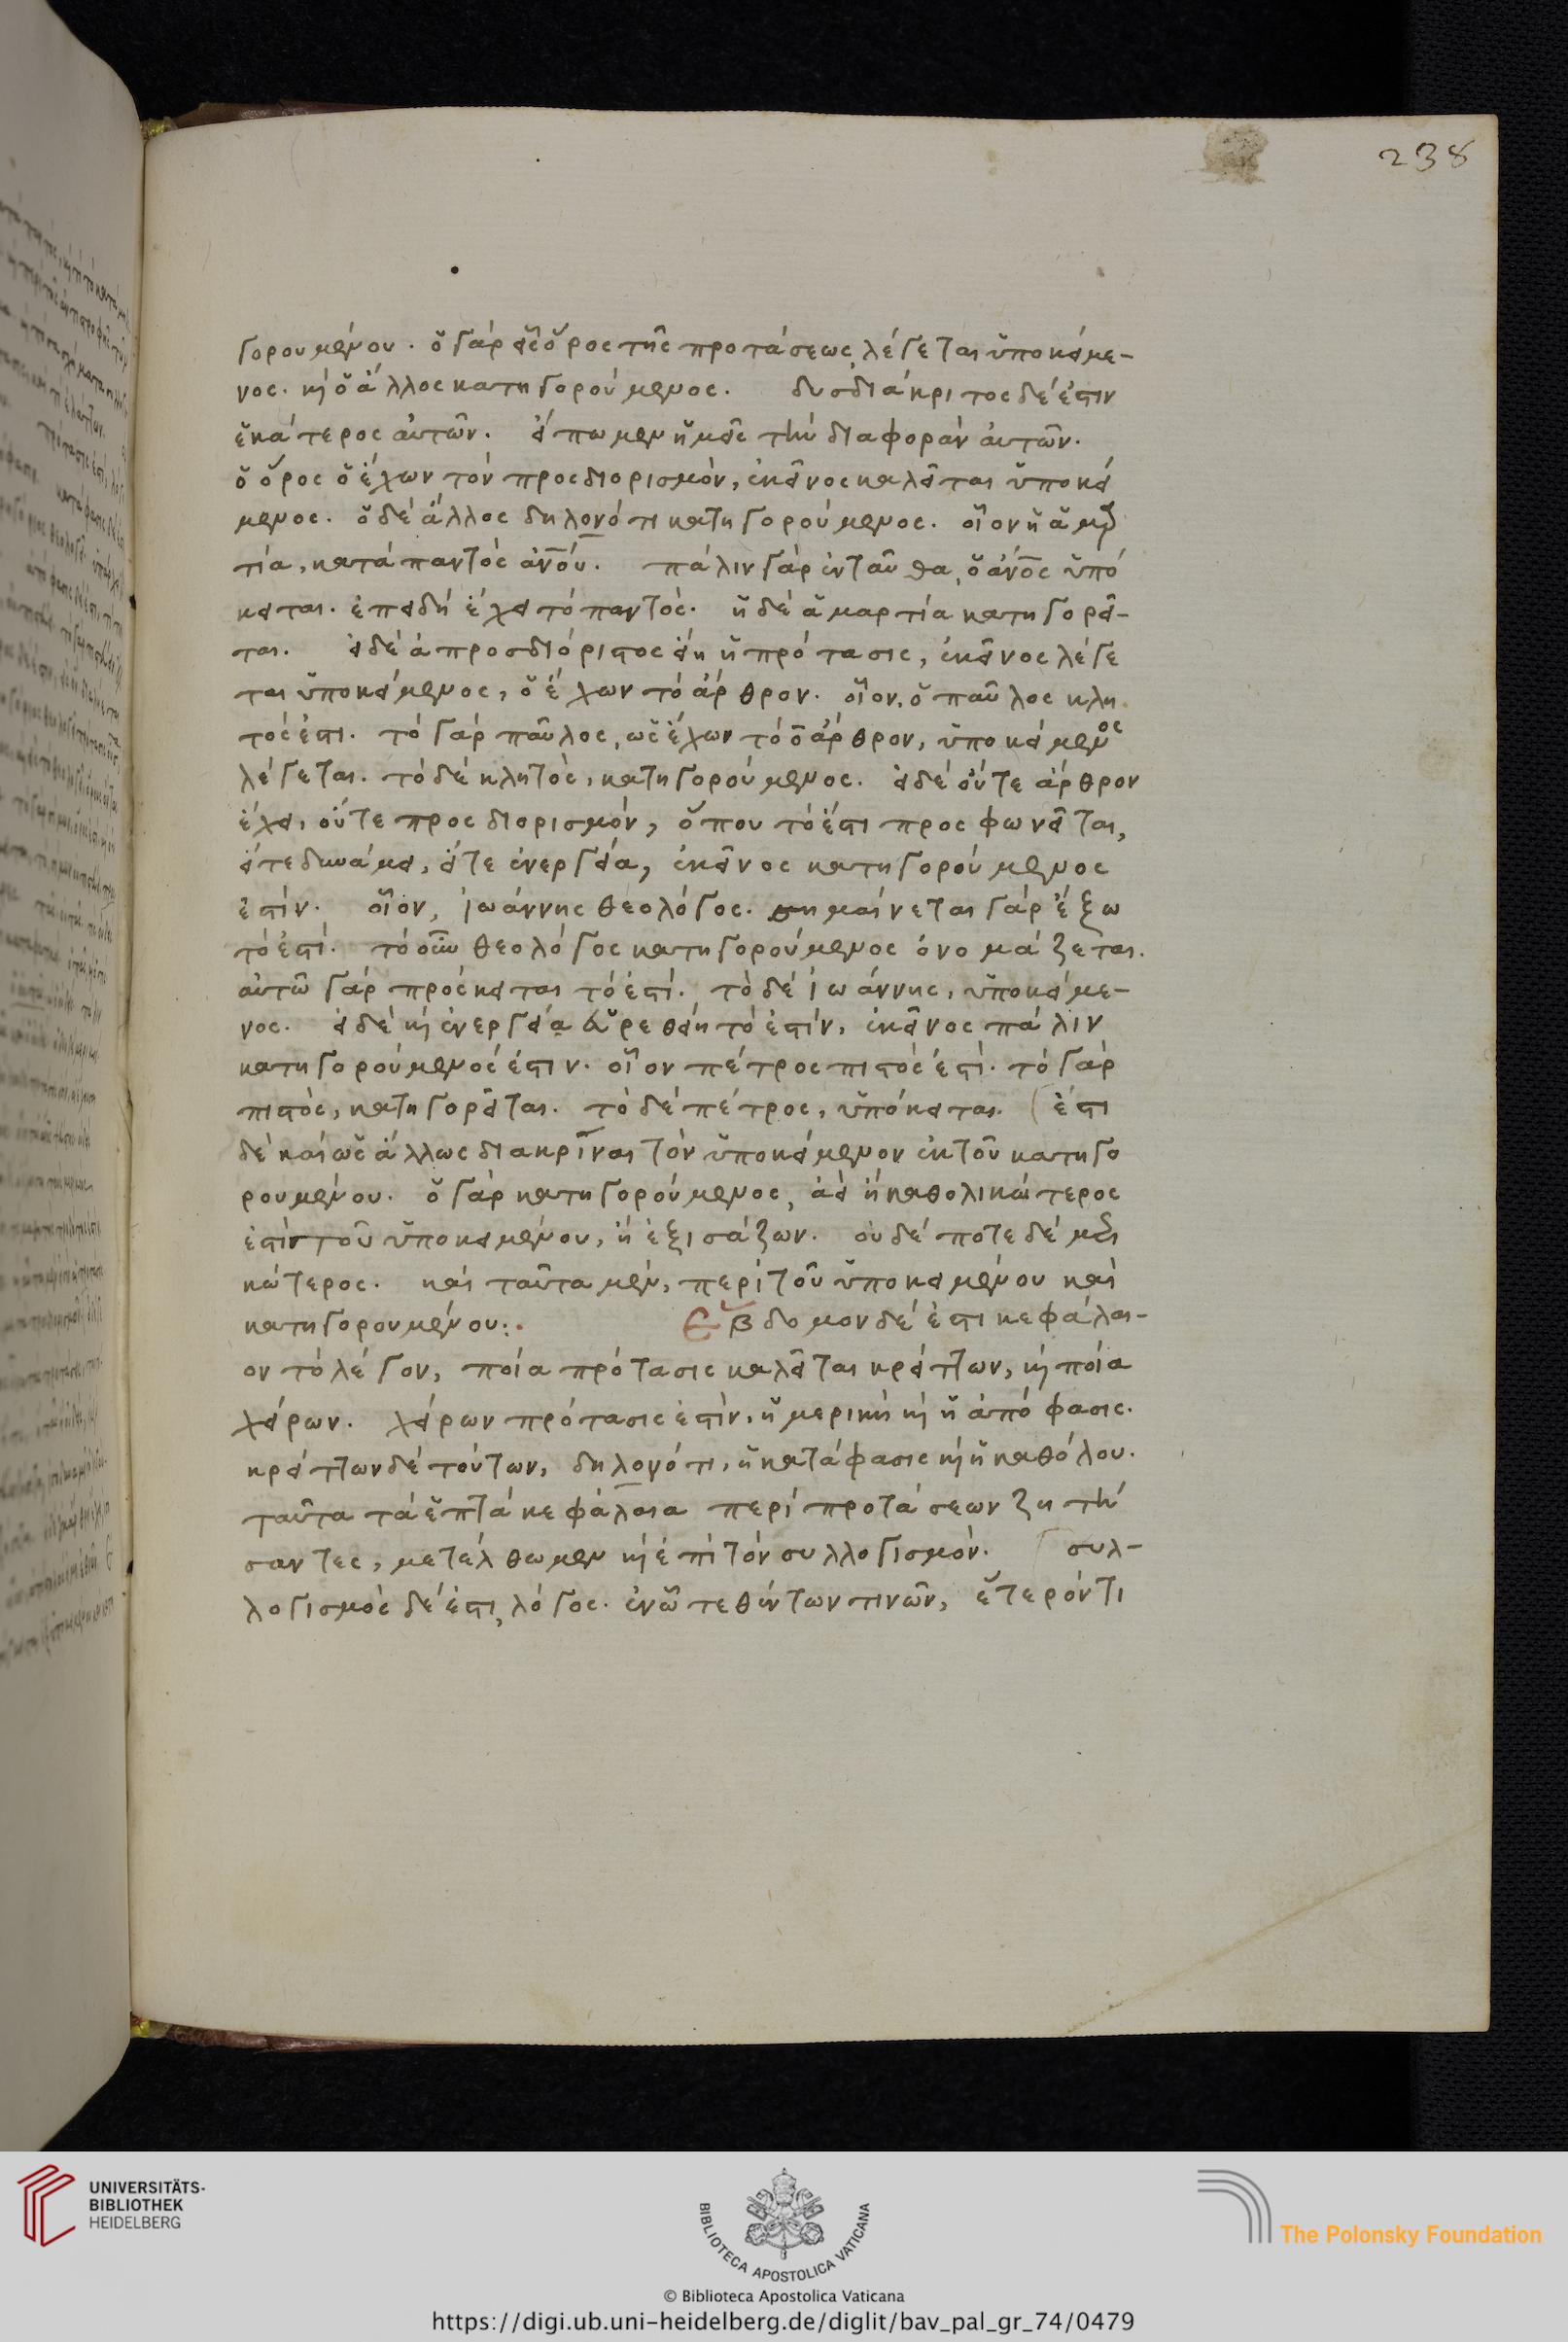 238
γορουμένου. ὁ γὰρ εἷς ὅρος τῆς προτάσεως, λέγεται ὑποκείμε-
νος. καὶ ὁ ἄλλος κατηγορούμενος. δυσδιάκριτος δέ ἐστιν
ἑκάτερος αὐτῶν. εἴπωμεν ἡμεῖς τὴν διαφορὰν αὐτῶν.
ὁ ὅρος ὁ ἔχων τὸν προσδιορισμὸν, ἐκεῖνος καλεῖται ὑποκεί
μενος. ὁ δὲ ἄλλος δηλονότι κατηγορούμενος. οἷον ἡ ἁμρ
τία, κατὰ παντὸς ἀν̅ου̅. πάλιν γὰρ ἐνταῦθα, ὁ ἄν̅ος ὑπό
κειται. ἐπειδὴ ἔχει τὸ παντὸς. ἡ δὲ ἁμαρτία κατηγορεῖ-
ται. εἰ δὲ ἀπροσδιόριστος εἴη ἡ πρότασις, ἐκεῖνος λέγε
ται ὑποκείμενος, ὁ ἔχων τὸ ἄρθρον. οἷον, ὁ παῦλος κλη
τός ἐστι. τὸ γὰρ παῦλος, ὡς ἔχων τὸ ὁ ἄρθρον, ὑποκείμενος
λέγεται. τὸ δὲ κλητὸς, κατηγορούμενος. εἰ δὲ οὔτε ἄρθρον
ἔχει, οὔτε προσδιορισμὸν, ὅπου τὸ ἔστι προσφωνεῖται,
εἴτε δυνάμει, εἴτε ἐνεργεία, ἐκεῖνος κατηγορούμενος
ἐστίν. οἷον, ἰωάννης θεολόγος. σημαίνεται γὰρ ἔξω
τὸ ἐστί. τὸ οὖν θεολόγος κατηγορούμενος ὀνομάζεται.
αὐτῶ γὰρ πρόσκειται τὸ ἐστί. τὸ δὲ ἰωάννης, ὑποκείμε-
νος. εἰ δὲ καὶ ἐνεργεία εὑρεθείη τὸ ἐστίν, ἐκεῖνος πάλιν
κατηγορούμενός ἐστιν. οἷον πέτρος πιστός ἐστὶ. τὸ γὰρ
πιστὸς, κατηγορεῖται. τὸ δὲ πέτρος, ὑπόκειται. ἔστι
δὲ καὶ ὡς ἄλλως διακρῖναι τὸν ὑποκείμενον ἐκ τοῦ κατηγο
ρουμένου. ὁ γὰρ κατηγορούμενος, ἀεὶ ἢ καθολικώτερος
ἐστὶν τοῦ ὑποκειμένου, ἢ ἐξισάζων. οὐδέποτε δὲ μερι
κώτερος. καὶ ταῦτα μὲν, περὶ τοῦ ὑποκειμένου καὶ
κατηγορουμένου:. Ἕβδομον δέ ἐστι κεφάλαι-
ον τὸ λέγον, ποία πρότασις καλεῖται κρείττων, καὶ ποία
χείρων. χείρων πρότασις ἐστὶν, ἡ μερικὴ καὶ ἡ ἀπόφασις.
κρείττων δὲ τούτων, δηλονότι, ἡ κατάφασις καὶ ἡ καθόλου.
ταῦτα τὰ ἑπτὰ κεφάλαια περὶ προτάσεων ζητή
σαντες, μετέλθωμεν καὶ ἐπὶ τὸν συλλογισμόν. συλ-
λογισμὸς δέ ἐστι, λόγος. ἐν ᾧ τεθέντων τινῶν, ἕτερόν τι
UNIVERSITÄTS-
BIBLIOTHEK
HEIDELBERG
BIBLIOTECA APOSTOLICA VATICANA
The Polonsky Foundation
© Biblioteca Apostolica Vaticana
https://digi.ub.uni-heidelberg.de/diglit/bav_pal_gr_74/0479